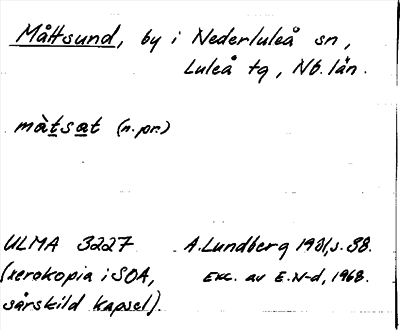 Måttsund, by i Nederluleå sn,
Luleå tg, Nb. län.
màtsat (n.pr.)
ULMA 3227 A. Lundberg 1931, s. 38.
(xerokopia i SOA, Exc. av E.N-d, 1968.
särskild kapsel).